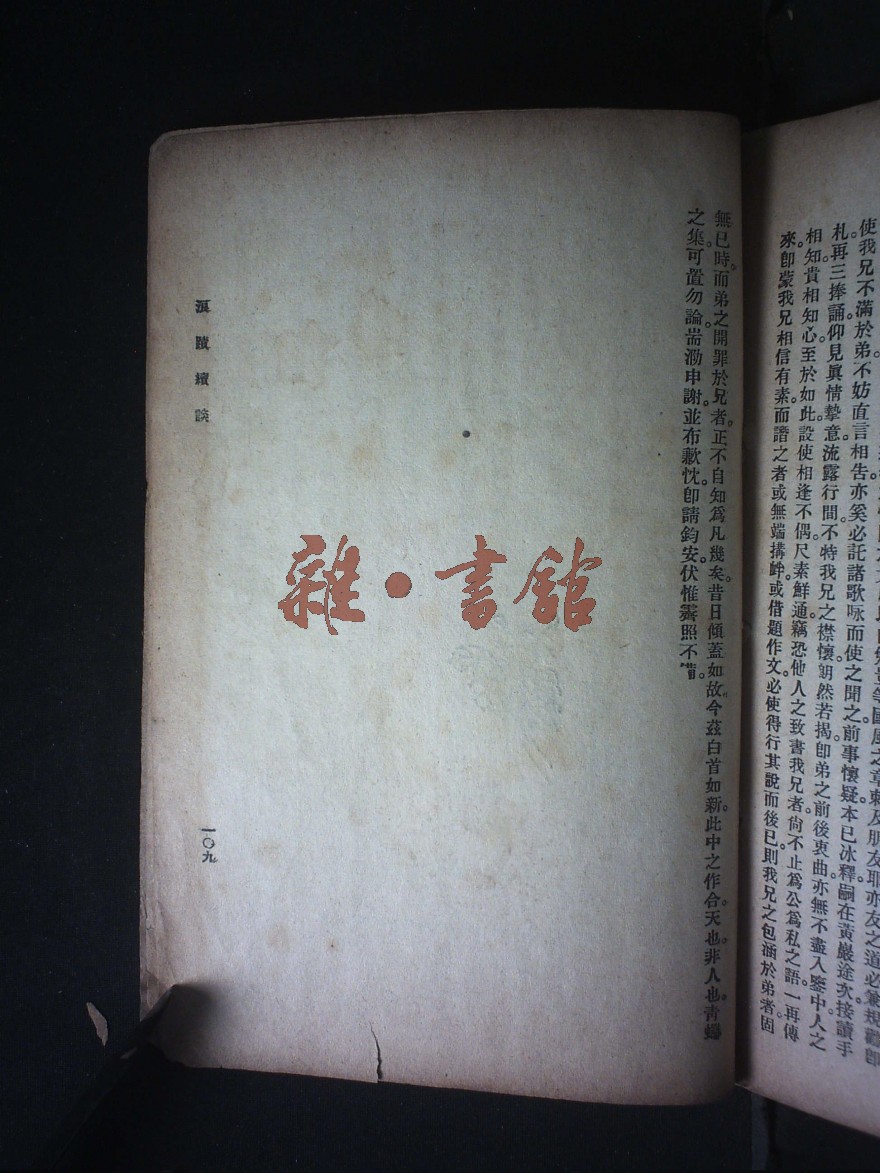 使我兄不滿於弟。不妨直言相告。亦奚必託諸歌咏而使之聞之。前事懷疑。本已冰釋。嗣在黃巖途次。接讀手
札。再三捧誦。仰見眞情摯意。流露行間。不特我兄之襟懷朗然若揭。卽弟之前後衷曲。亦無不盡入鑒中。人之
相知。貴相知心。至於如此。設使相逢不偶。尺素鮮通。竊恐他人之致書我兄者。尙不止爲公爲私之語。一再傳
來。卽蒙我兄相信有素。而譖之者或無端搆衅。或借題作文。必使得行其說而後已。則我兄之包涵於弟者。固
無已時。而弟之開罪於兄者。正不自知爲凡幾矣。昔日傾蓋如故。今茲白首如新。此中之作合。天也。非人也。青蠅
之集。可置勿論。耑泐申謝。並布歉忱。卽請鈞安。伏惟霽照不儩。
淚蹟續談
一〇九
雜·書館